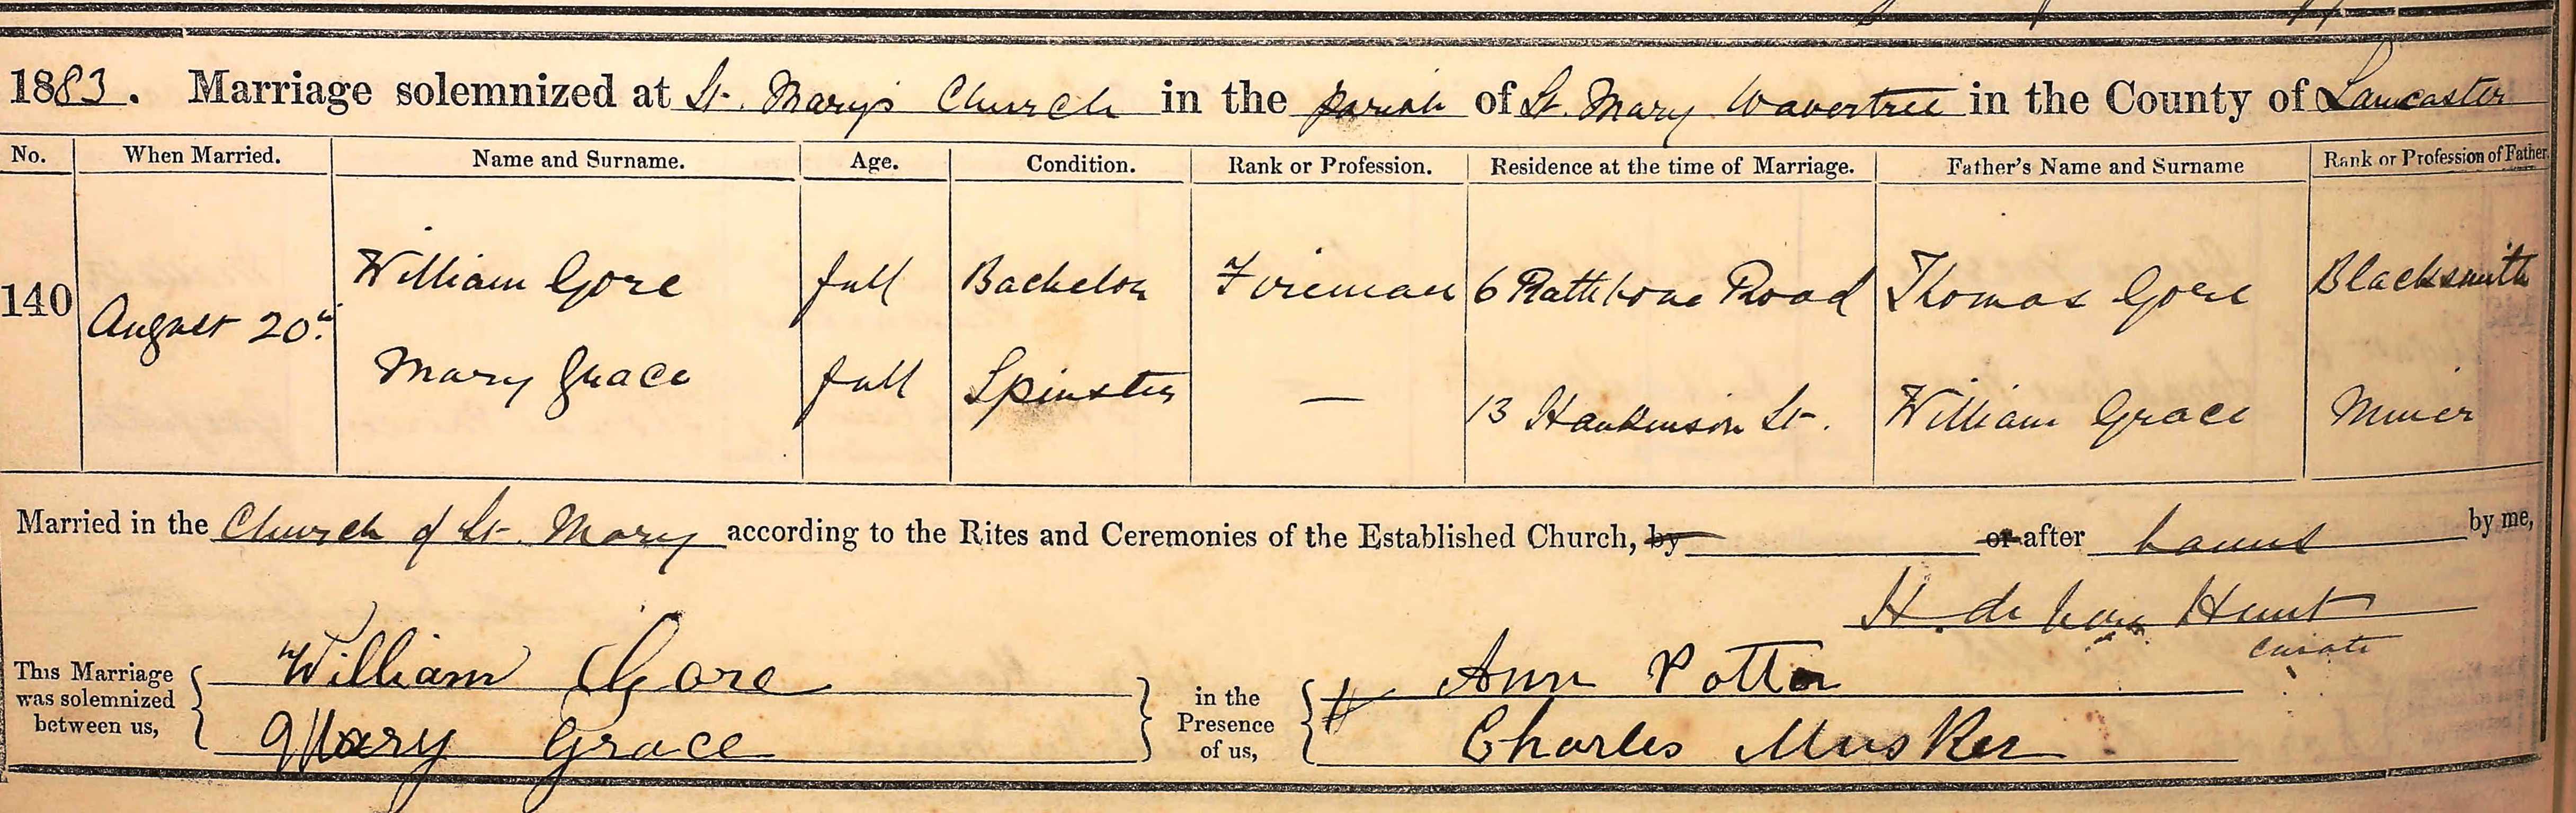 1883. Marriage solemnized at St. Mary's Church in the parish of St. Mary Wavertree in the County of Lancaster
No. When Married. Name and Surname. Age. Condition. Rank or Profession. Residence at the time of Marriage. Father's Name and Surname Rank or Profession of Father.
William Gore full Bachelor Fireman 6 Rathbone Road Thomas Gore Blacksmith
140 August 20th
Mary Grace full Spinster — 13 Hankinson St. William Grace Miner
Married in the Church of St. Mary according to the Rites and Ceremonies of the Established Church, by or after banns by me,
H. de Hunt
Curate
This Marriage was solemnized between us, William Gore Mary Grace in the Presence of us, Ann Potter Charles Musker